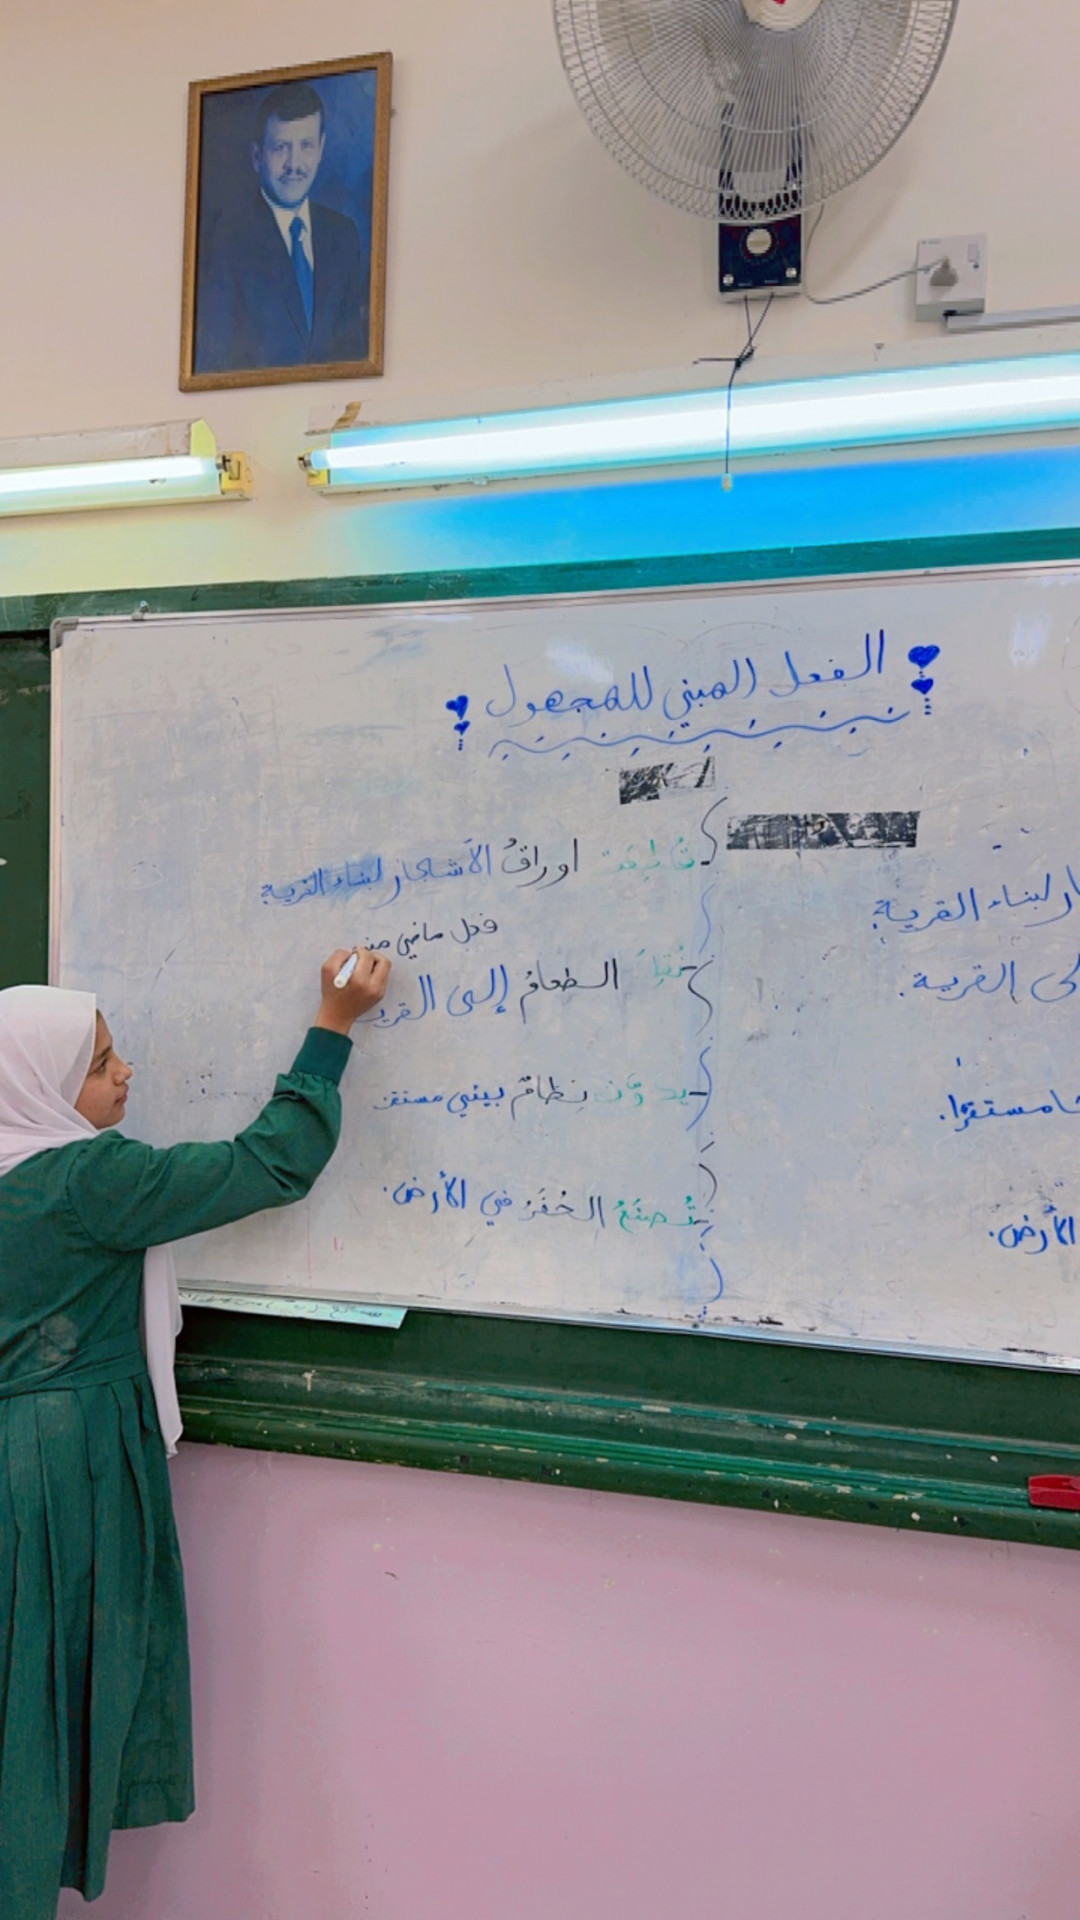 الفعل المبني للمجهول
اوراقُ الأشجار لبناء القرية
فعل ماضي
نُقِلَ الطعامُ إلى القرية
نظامٌ بيئي مستقر
تُصنَعُ الحُفَرُ في الأرض.
لبناء القرية.
القرية.
مستقرًا.
الأرض.